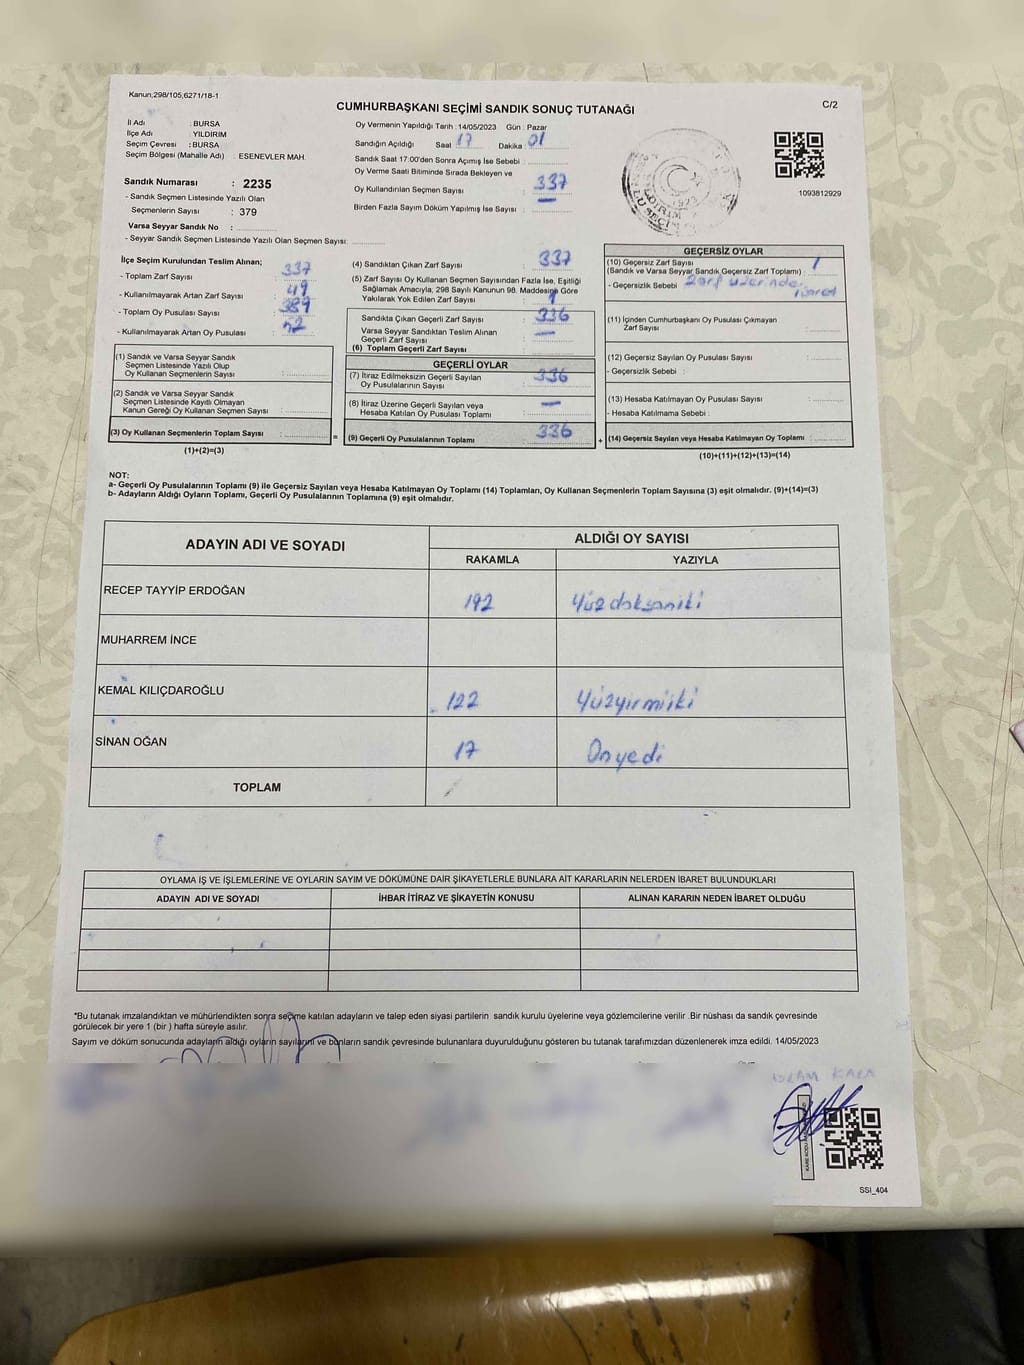 Kanun;298/105,6271/18-1
CUMHURBAŞKANI SEÇİMİ SANDIK SONUÇ TUTANAĞI
C/2
İl Adı : BURSA
İlçe Adı : YILDIRIM
Seçim Çevresi : BURSA
Seçim Bölgesi (Mahalle Adı) : ESENEVLER MAH.
Sandık Numarası : 2235
- Sandık Seçmen Listesinde Yazılı Olan
Seçmenlerin Sayısı : 379
Varsa Seyyar Sandık No :
- Seyyar Sandık Seçmen Listesinde Yazılı Olan Seçmen Sayısı:
Oy Vermenin Yapıldığı Tarih : 14/05/2023 Gün : Pazar
Sandığın Açıldığı Saat 17 Dakika 01
Sandık Saat 17:00'den Sonra Açımış İse Sebebi :
Oy Verme Saati Bitiminde Sırada Bekleyen ve
Oy Kullandırılan Seçmen Sayısı : 337
Birden Fazla Sayım Döküm Yapılmış İse Sayısı : —
1093812929
İlçe Seçim Kurulundan Teslim Alınan;
- Toplam Zarf Sayısı : 337
- Kullanılmayarak Artan Zarf Sayısı : 49
- Toplam Oy Pusulası Sayısı : 389
- Kullanılmayarak Artan Oy Pusulası : 52
(1) Sandık ve Varsa Seyyar Sandık
Seçmen Listesinde Yazılı Olup
Oy Kullanan Seçmenlerin Sayısı :
(2) Sandık ve Varsa Seyyar Sandık
Seçmen Listesinde Kayıtlı Olmayan
Kanun Gereği Oy Kullanan Seçmen Sayısı :
(3) Oy Kullanan Seçmenlerin Toplam Sayısı :
(1)+(2)=(3)
=
(4) Sandıktan Çıkan Zarf Sayısı : 337
(5) Zarf Sayısı Oy Kullanan Seçmen Sayısından Fazla İse, Eşitliği
Sağlamak Amacıyla; 298 Sayılı Kanunun 98. Maddesine Göre
Yakılarak Yok Edilen Zarf Sayısı :
Sandıkta Çıkan Geçerli Zarf Sayısı : 336
Varsa Seyyar Sandıktan Teslim Alınan
Geçerli Zarf Sayısı : —
(6) Toplam Geçerli Zarf Sayısı
GEÇERLİ OYLAR
(7) İtiraz Edilmeksizin Geçerli Sayılan
Oy Pusulalarının Sayısı : 336
(8) İtiraz Üzerine Geçerli Sayılan veya
Hesaba Katılan Oy Pusulası Toplamı : —
(9) Geçerli Oy Pusulalarının Toplamı : 336
+
GEÇERSİZ OYLAR
(10) Geçersiz Zarf Sayısı
(Sandık ve Varsa Seyyar Sandık Geçersiz Zarf Toplamı) : 1
- Geçersizlik Sebebi : Zarf üzerinde
işaret
(11) İçinden Cumhurbaşkanı Oy Pusulası Çıkmayan
Zarf Sayısı :
(12) Geçersiz Sayılan Oy Pusulası Sayısı :
- Geçersizlik Sebebi :
(13) Hesaba Katılmayan Oy Pusulası Sayısı :
- Hesaba Katılmama Sebebi :
(14) Geçersiz Sayılan veya Hesaba Katılmayan Oy Toplamı :
(10)+(11)+(12)+(13)=(14)
NOT:
a- Geçerli Oy Pusulalarının Toplamı (9) ile Geçersiz Sayılan veya Hesaba Katılmayan Oy Toplamı (14) Toplamları, Oy Kullanan Seçmenlerin Toplam Sayısına (3) eşit olmalıdır. (9)+(14)=(3)
b- Adayların Aldığı Oyların Toplamı, Geçerli Oy Pusulalarının Toplamına (9) eşit olmalıdır.
ADAYIN ADI VE SOYADI
ALDIĞI OY SAYISI
RAKAMLA YAZIYLA
RECEP TAYYİP ERDOĞAN 192 Yüz doksaniki
MUHARREM İNCE
KEMAL KILIÇDAROĞLU 122 Yüzyirmiiki
SİNAN OĞAN 17 Onyedi
TOPLAM
OYLAMA İŞ VE İŞLEMLERİNE VE OYLARIN SAYIM VE DÖKÜMÜNE DAİR ŞİKAYETLERLE BUNLARA AİT KARARLARIN NELERDEN İBARET BULUNDUKLARI
ADAYIN ADI VE SOYADI İHBAR İTİRAZ VE ŞİKAYETİN KONUSU ALINAN KARARIN NEDEN İBARET OLDUĞU
*Bu tutanak imzalandıktan ve mühürlendikten sonra seçime katılan adayların ve talep eden siyasi partilerin sandık kurulu üyelerine veya gözlemcilerine verilir .Bir nüshası da sandık çevresinde
görülecek bir yere 1 (bir ) hafta süreyle asılır.
Sayım ve döküm sonucunda adayların aldığı oyların sayılarını ve bunların sandık çevresinde bulunanlara duyurulduğunu gösteren bu tutanak tarafımızdan düzenlenerek imza edildi. 14/05/2023
KARA
SSI_404